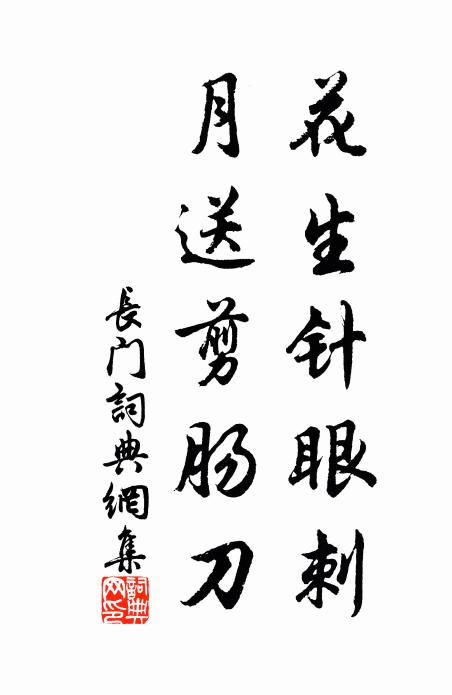 花生针眼刺
月送剪肠刀
長门詞典網集
詞典网印